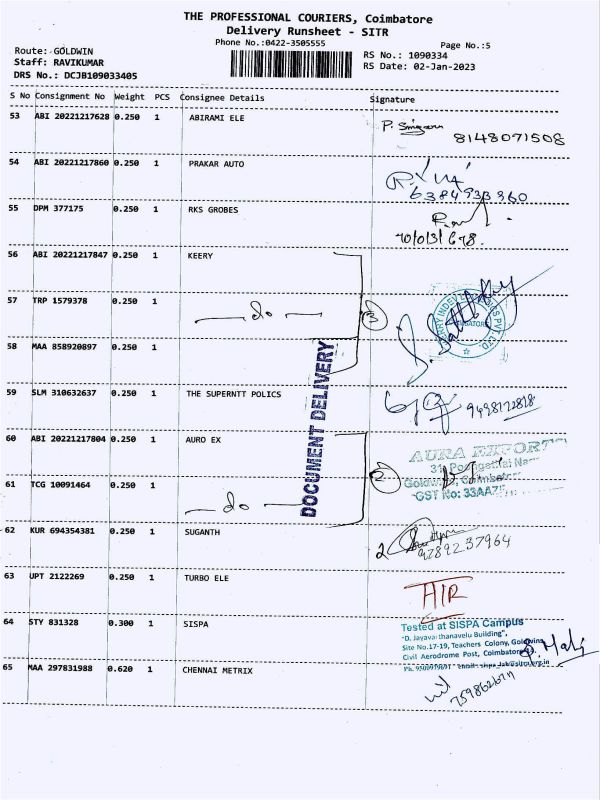 THE PROFESSIONAL COURIERS, Coimbatore
Delivery Runsheet - SITR
Phone No.:0422-3505555
Page No.:5
Route: GOLDWIN
Staff: RAVIKUMAR
DRS No.: DCJB109033405
RS No.: 1090334
RS Date: 02-Jan-2023
S No Consignment No Weight PCS Consignee Details Signature
53 ABI 20221217628 0.250 1 ABIRAMI ELE
8148071508
54 ABI 20221217860 0.250 1 PRAKAR AUTO
6384933960
55 DPM 377175 0.250 1 RKS GROBES
56 ABI 20221217847 0.250 1 KEERY
57 TRP 1579378 0.250 1 — do — 3
58 MAA 858920897 0.250 1
DOCUMENT DELIVERY
59 SLM 310632637 0.250 1 THE SUPERNTT POLICS
9498172818
60 ABI 20221217804 0.250 1 AURO EX
AURA EXPORT
61 TCG 10091464 0.250 1 — do — 2
GST No: 33AA
62 KUR 694354381 0.250 1 SUGANTH
2
9789237964
63 UPT 2122269 0.250 1 TURBO ELE
64 STY 831328 0.300 1 SISPA
Tested at SISPA Campus
"D. Jayavarthanavelu Building",
Site No.17-19, Teachers Colony, Goldwins
Civil Aerodrome Post, Coimbatore
65 MAA 297831988 0.620 1 CHENNAI METRIX